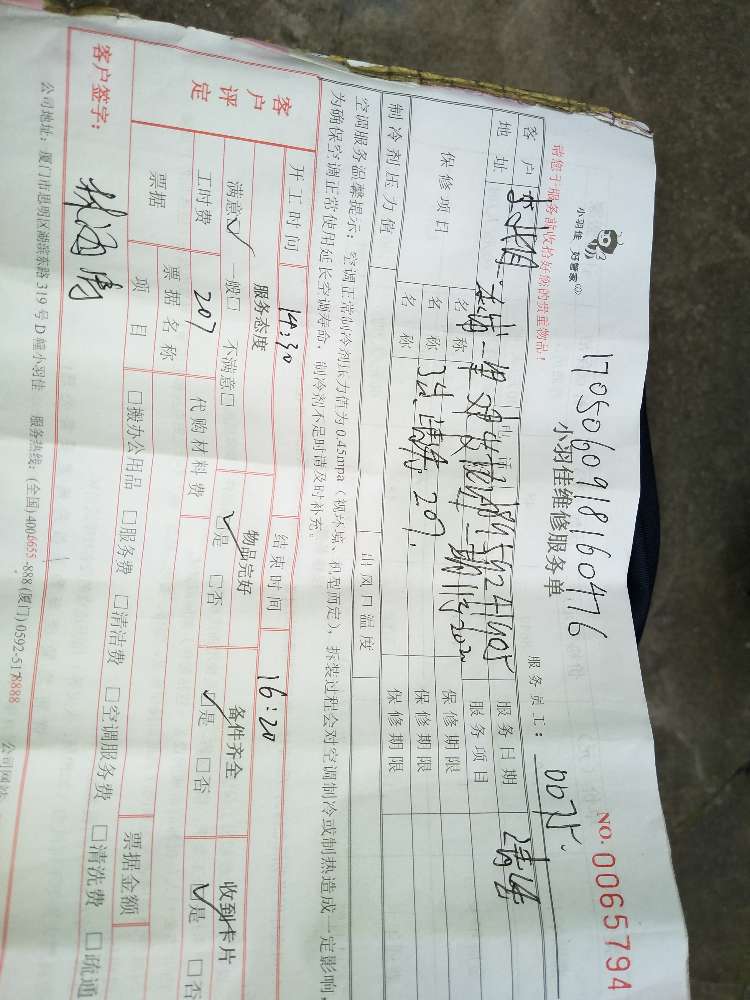 小羽佳 好管家
NO.0065794
1705060918160476
小羽佳维修服务单
服务员工： 0075
请您于服务前收拾好您的贵重物品！
客户
服务日期
地址
服务项目 清洗
保修项目
名称
保修期限
名称
保修期限
名称 3点 207
保修期限
制冷剂压力值
出风口温度
空调服务温馨提示：空调正常制冷剂压力值为0.45mpa（视环境、机型而定），拆装过程会对空调制冷或制热造成一定影响，
为确保空调正常使用延长空调寿命，制冷剂不足时请及时补充。
开工时间 14:30 结束时间 16:20
客户评定
服务态度 物品完好 备件齐全 收到卡片
满意☑ 一般□ 不满意□ ☑是 □否 ☑是 □否 ☑是 □否
工时费 207 代购材料费
票据 票据名称 票据金额
项目 □搬办公用品 □服务费 □清洁费 □空调服务费 □清洗费 □疏通
客户签字：
公司地址：厦门市思明区湖滨东路319号D幢小羽佳 服务热线：(全国)4004655-888 (厦门)0592-5178888 公司网站